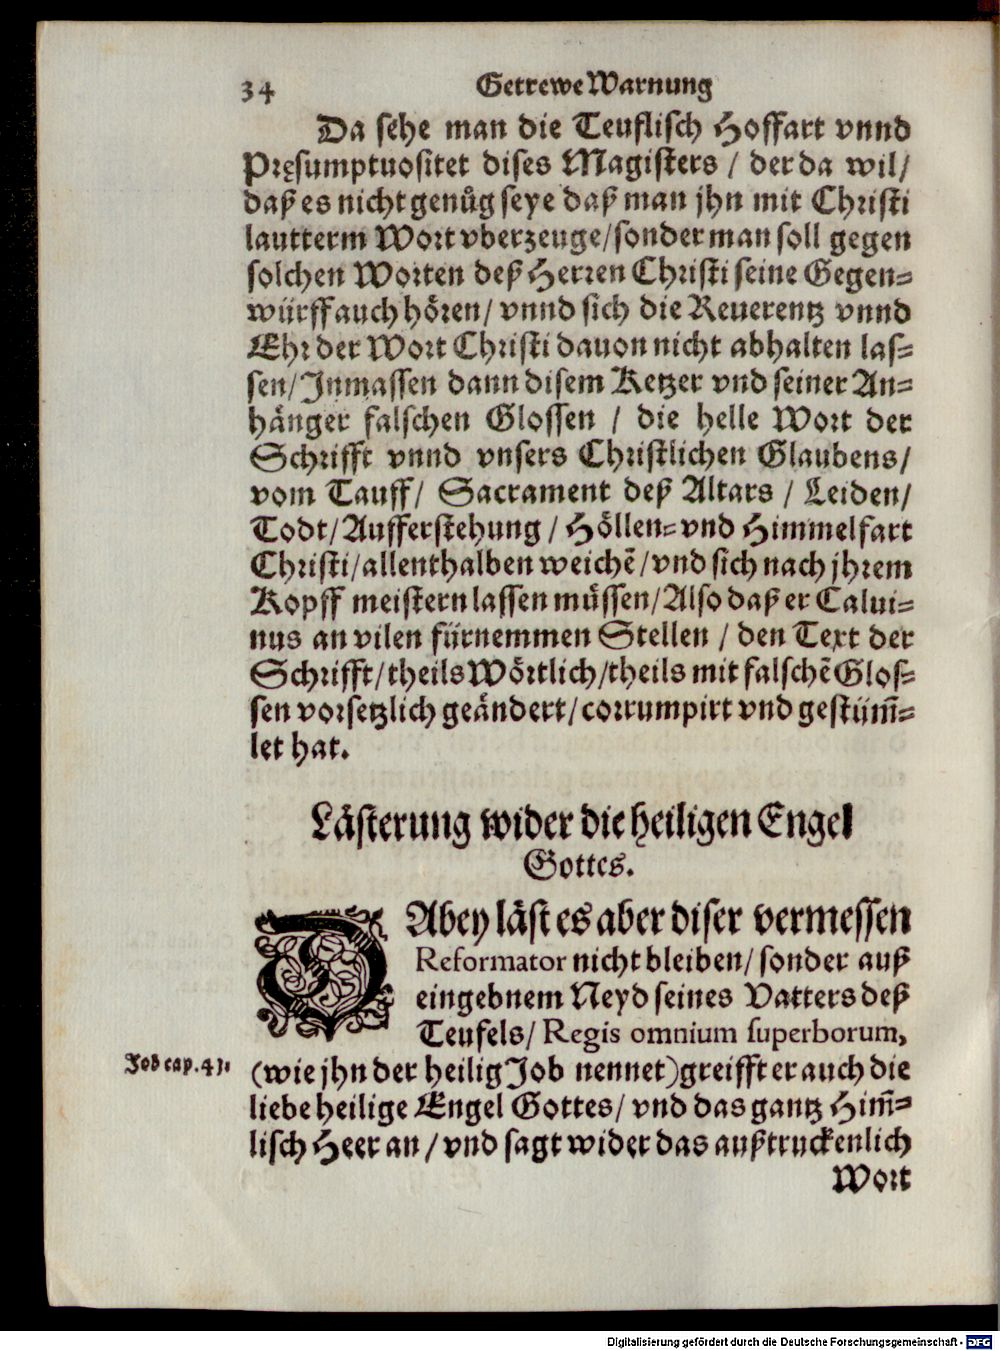 34 Getrewe Warnung
Da sehe man die Teuflisch Hoffart vnnd
Pręsumptuositet dises Magisters / der da wil/
daß es nicht genůg seye daß man jhn mit Christi
lautterm Wort vberzeuge/sonder man soll gegen
solchen Worten deß Herren Christi seine Gegen=
würff auch hören/ vnnd sich die Reuerentz vnnd
Ehr der Wort Christi dauon nicht abhalten las=
sen/Inmassen dann disem Ketzer vnd seiner An=
hänger falschen Glossen / die helle Wort der
Schrifft vnnd vnsers Christlichen Glaubens/
vom Tauff/ Sacrament deß Altars / Leiden/
Todt/Aufferstehung / Höllen= vnd Himmelfart
Christi/allenthalben weichē/vnd sich nach jhrem
Kopff meistern lassen müssen/Also daß er Calui=
nus an vilen fürnemmen Stellen / den Text der
Schrifft/theils Wörtlich/theils mit falschē Glos=
sen vorsetzlich geändert/corrumpirt vnd gestüm̄=
let hat.
Lästerung wider die heiligen Engel
Gottes.
DAbey läst es aber diser vermessen
Reformator nicht bleiben/ sonder auß
eingebnem Neyd seines Vatters deß
Teufels/ Regis omnium superborum,
Job cap. 41. (wie jhn der heilig Job nennet)greifft er auch die
liebe heilige Engel Gottes/ vnd das gantz Him̄=
lisch Heer an / vnd sagt wider das außtruckenlich
Wort
Digitalisierung gefördert durch die Deutsche Forschungsgemeinschaft - DFG